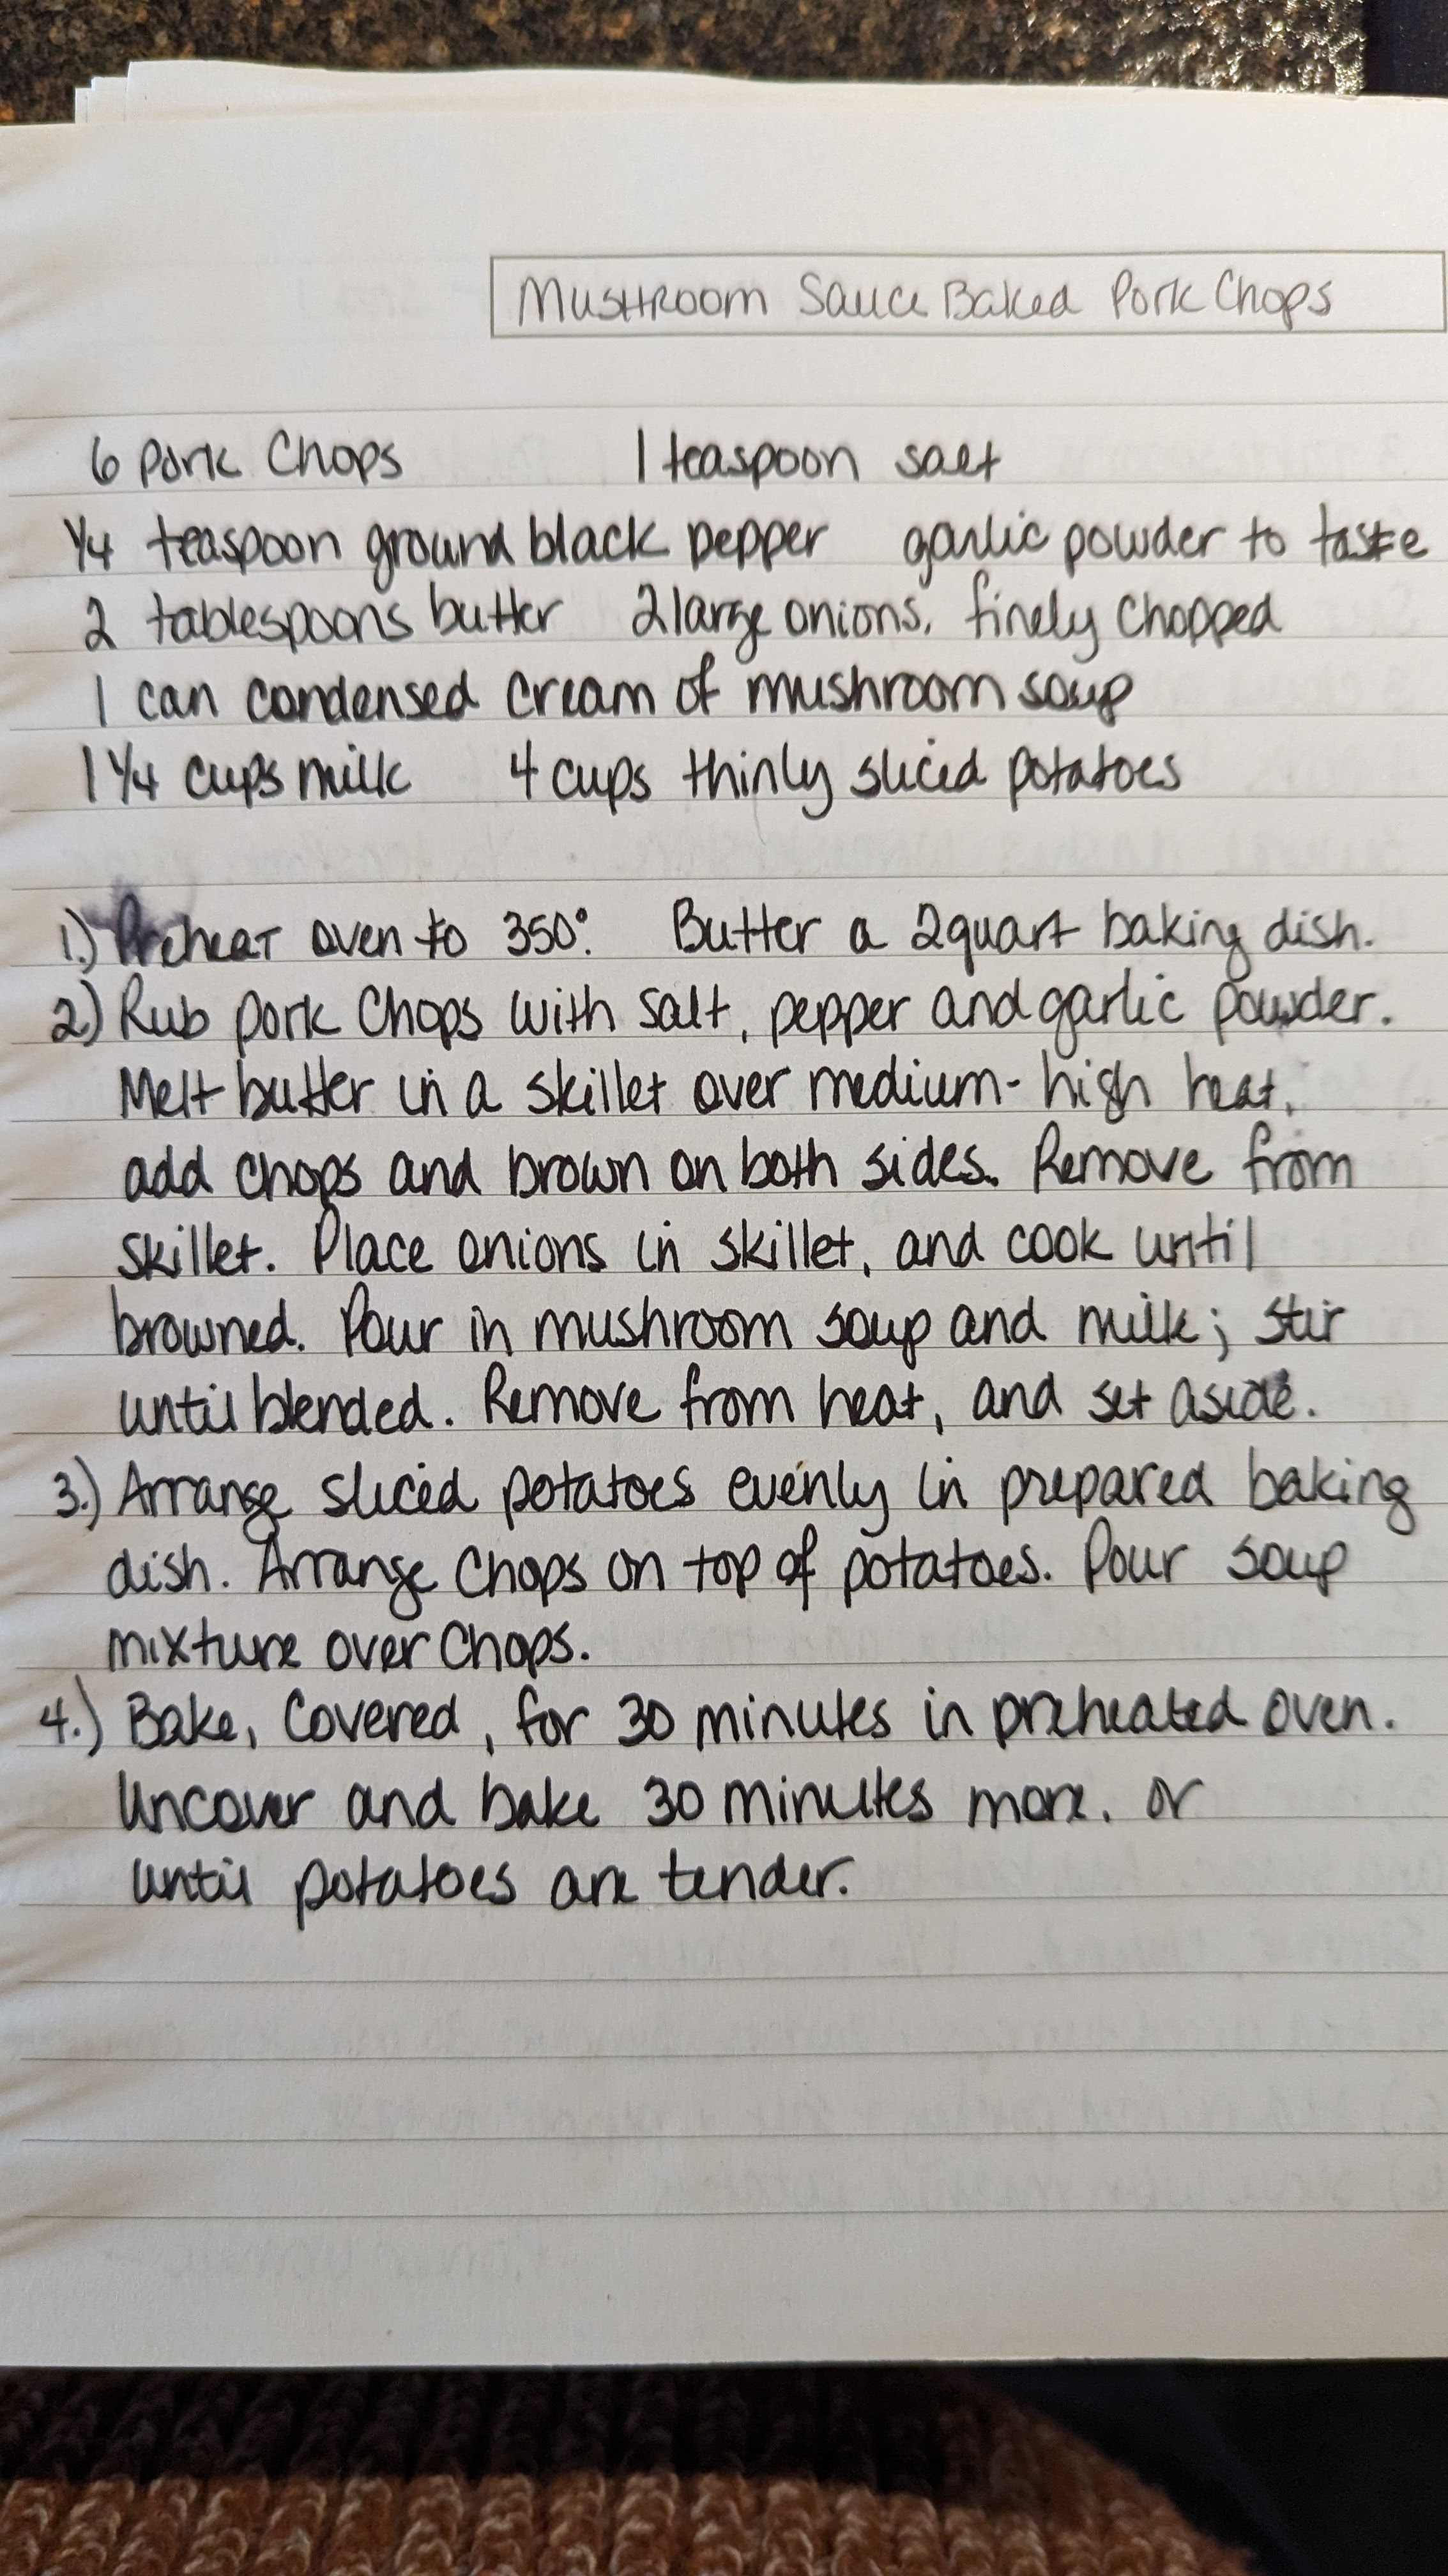 Mushroom Sauce Baked Pork Chops
6 Pork Chops 1 teaspoon salt
1/4 teaspoon ground black pepper garlic powder to taste
2 tablespoons butter 2 large onions, finely chopped
1 can condensed cream of mushroom soup
1 1/4 cups milk 4 cups thinly sliced potatoes
1.) Preheat oven to 350°. Butter a 2 quart baking dish.
2.) Rub pork chops with salt, pepper and garlic powder.
Melt butter in a skillet over medium-high heat,
add chops and brown on both sides. Remove from
skillet. Place onions in skillet, and cook until
browned. Pour in mushroom soup and milk; stir
until blended. Remove from heat, and set aside.
3.) Arrange sliced potatoes evenly in prepared baking
dish. Arrange chops on top of potatoes. Pour soup
mixture over chops.
4.) Bake, covered, for 30 minutes in preheated oven.
Uncover and bake 30 minutes more, or
until potatoes are tender.